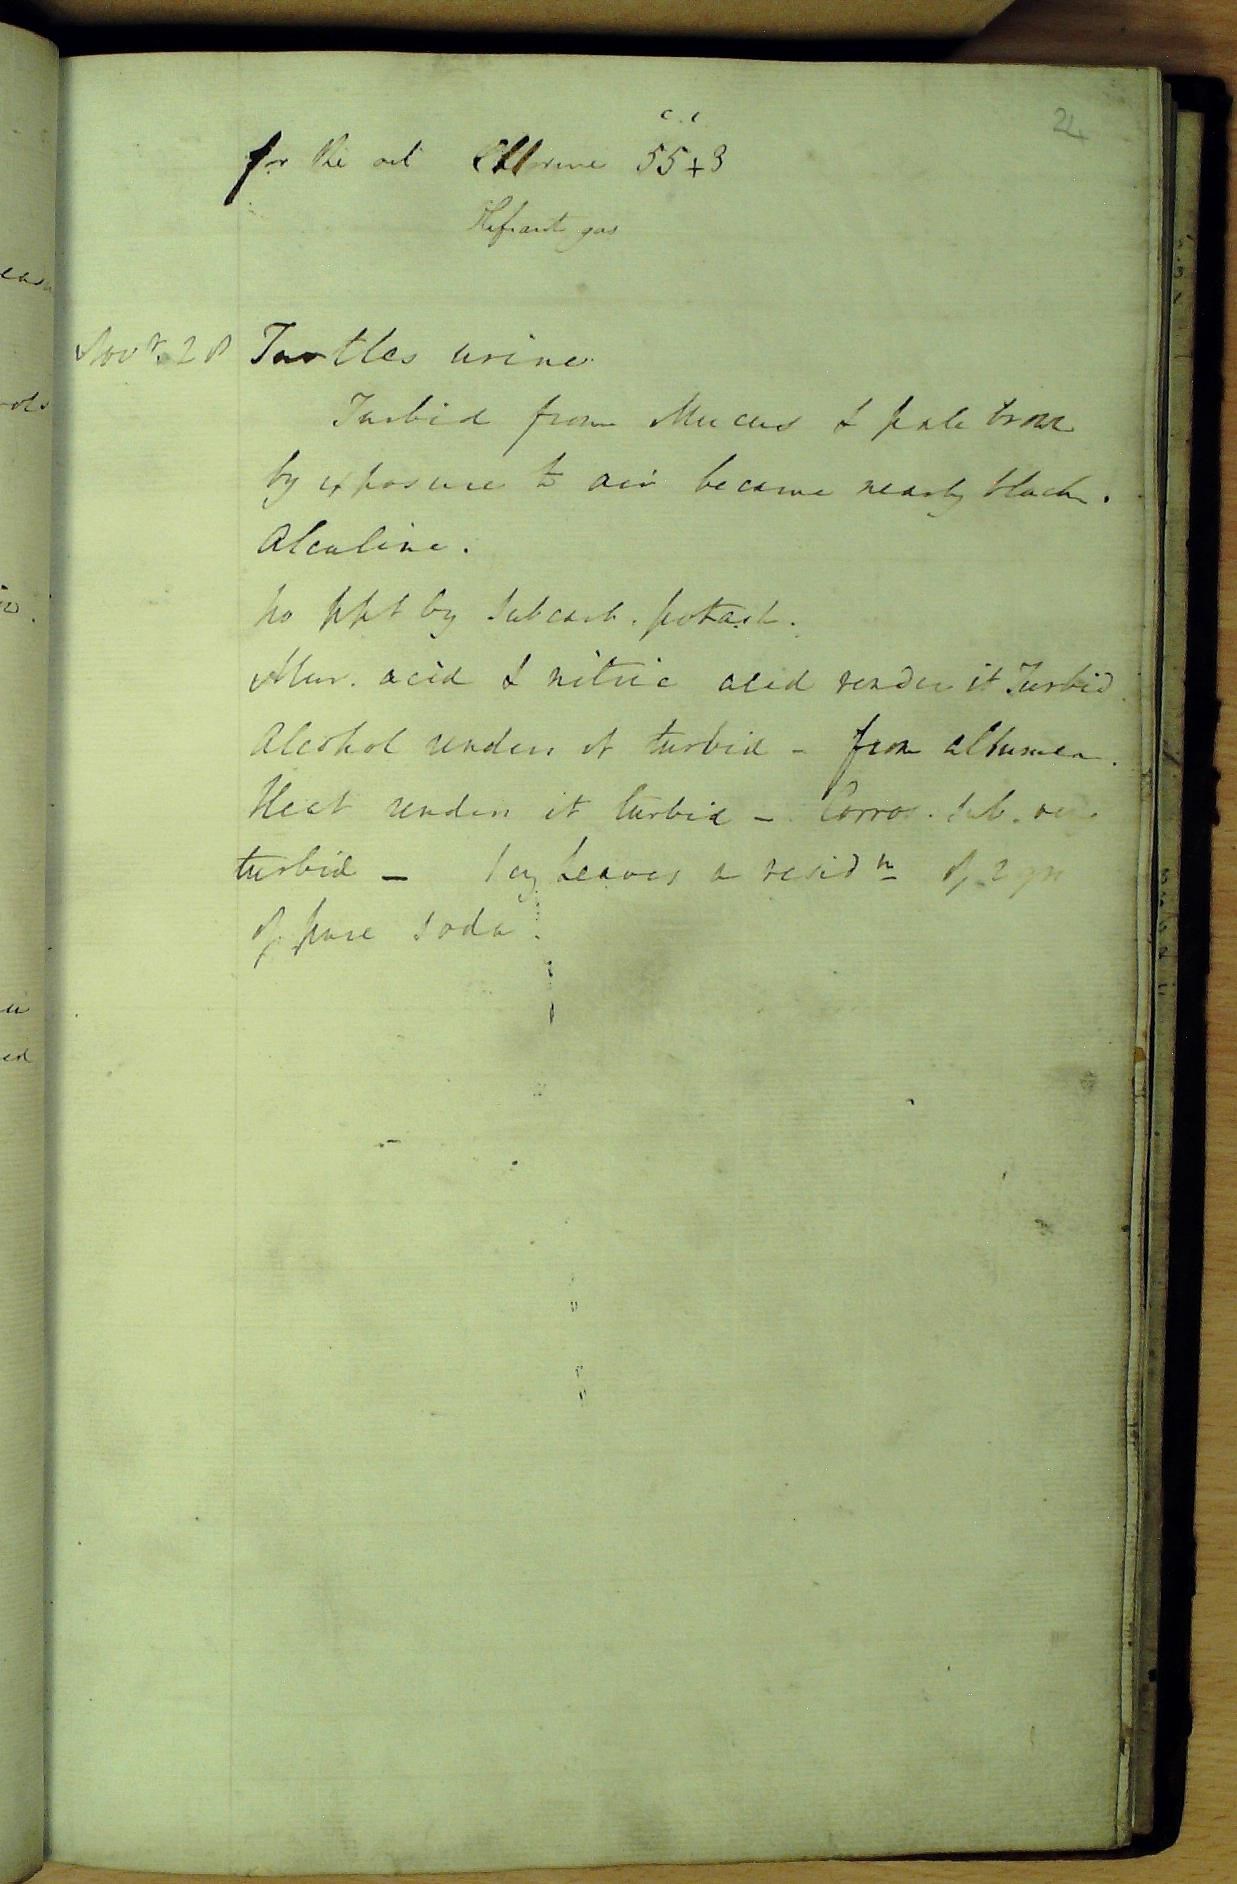 24
c. i
for the oil Chlorine 55 + 3
Olefiant gas
Novr. 28 Turtles urine
Turbid from Mucus & pale brown
by exposure to air became nearly black.
Alcaline.
no ppt by Subcarb. potash.
Mur. acid & nitric acid render it Turbid
Alcohol renders it turbid - from albumen.
Heat renders it turbid - Corros. Sub.
turbid - leaves a residm of 2 grs
of pure soda.